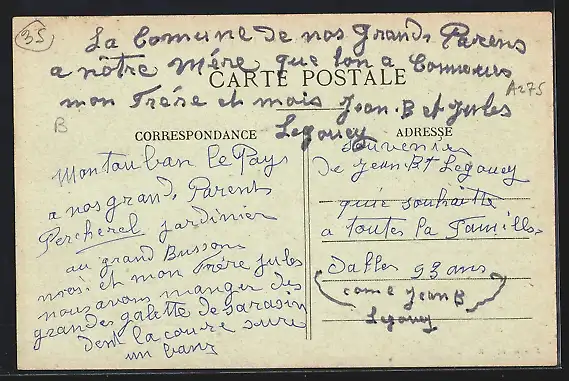 35
La Comune de nos Grands Parens
a nôtre Mére que lon a Connues
CARTE POSTALE
mon Frére et mois Jean.B et Jules
Legouey
A275
B
CORRESPONDANCE
ADRESSE
Montauban le Pays
a nos grands Parents
Percherel jardinier
au grand Busson
nois. et mon Frére Jules
nous avons manger des
grandes galette de sarasin
dent la coure sure
un banz
Souvenirs
De Jean.Bt Legouey
quie souhaitte
a toutes la Famille
Dattes 93 ans
come Jean B
Legouey